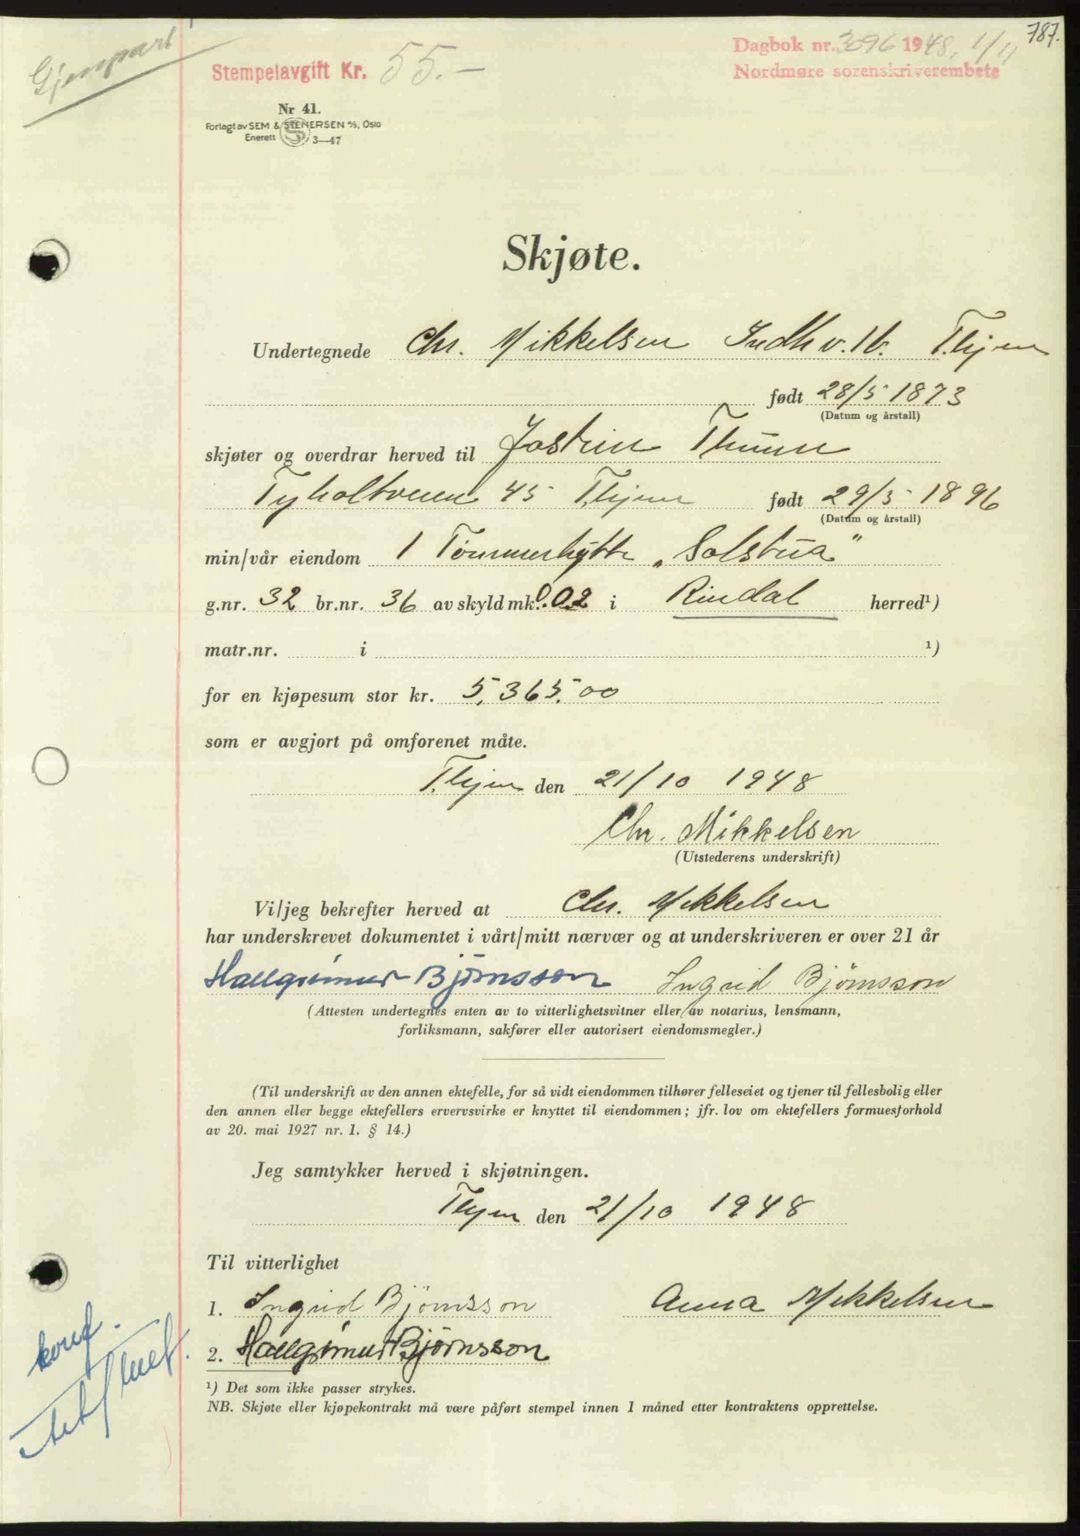 787.
Gjenpart
Stempelavgift Kr. 55.-
Dagbok nr. 3096 1948, 1/11
Nordmøre sorenskriverembete
Nr 41.
Forlagt av SEM & STENERSEN A/S, Oslo
Enerett 3—47
Skjøte.
Undertegnede Chr. Mikkelsen Indh v. 16. T.hjem
født 28/5 1873
(Datum og årstall)
skjøter og overdrar herved til Jostein
Tyholtveien 45 T.hjem født 29/5 1896
(Datum og årstall)
min/vår eiendom 1 Tømmerhytte „Solstua"
g.nr. 32 br.nr. 36 av skyld mk. 0.02 i Rindal herred¹)
matr.nr. i ¹)
for en kjøpesum stor kr. 5.365.00
som er avgjort på omforenet måte.
T.hjem den 21/10 1948
Chr. Mikkelsen
(Utstederens underskrift)
Vi/jeg bekrefter herved at Chr. Mikkelsen
har underskrevet dokumentet i vårt/mitt nærvær og at underskriveren er over 21 år
Hallgrimur Björnsson Ingrid Björnsson
(Attesten undertegnes enten av to vitterlighetsvitner eller av notarius, lensmann,
forliksmann, sakfører eller autorisert eiendomsmegler.)
(Til underskrift av den annen ektefelle, for så vidt eiendommen tilhører felleseiet og tjener til fellesbolig eller
den annen eller begge ektefellers ervervsvirke er knyttet til eiendommen; jfr. lov om ektefellers formuesforhold
av 20. mai 1927 nr. 1. § 14.)
Jeg samtykker herved i skjøtningen.
T.hjem den 21/10 1948
Til vitterlighet
1. Ingrid Björnsson Anna Mikkelsen
2. Hallgrimur Björnsson
¹) Det som ikke passer strykes.
NB. Skjøte eller kjøpekontrakt må være påført stempel innen 1 måned etter kontraktens opprettelse.